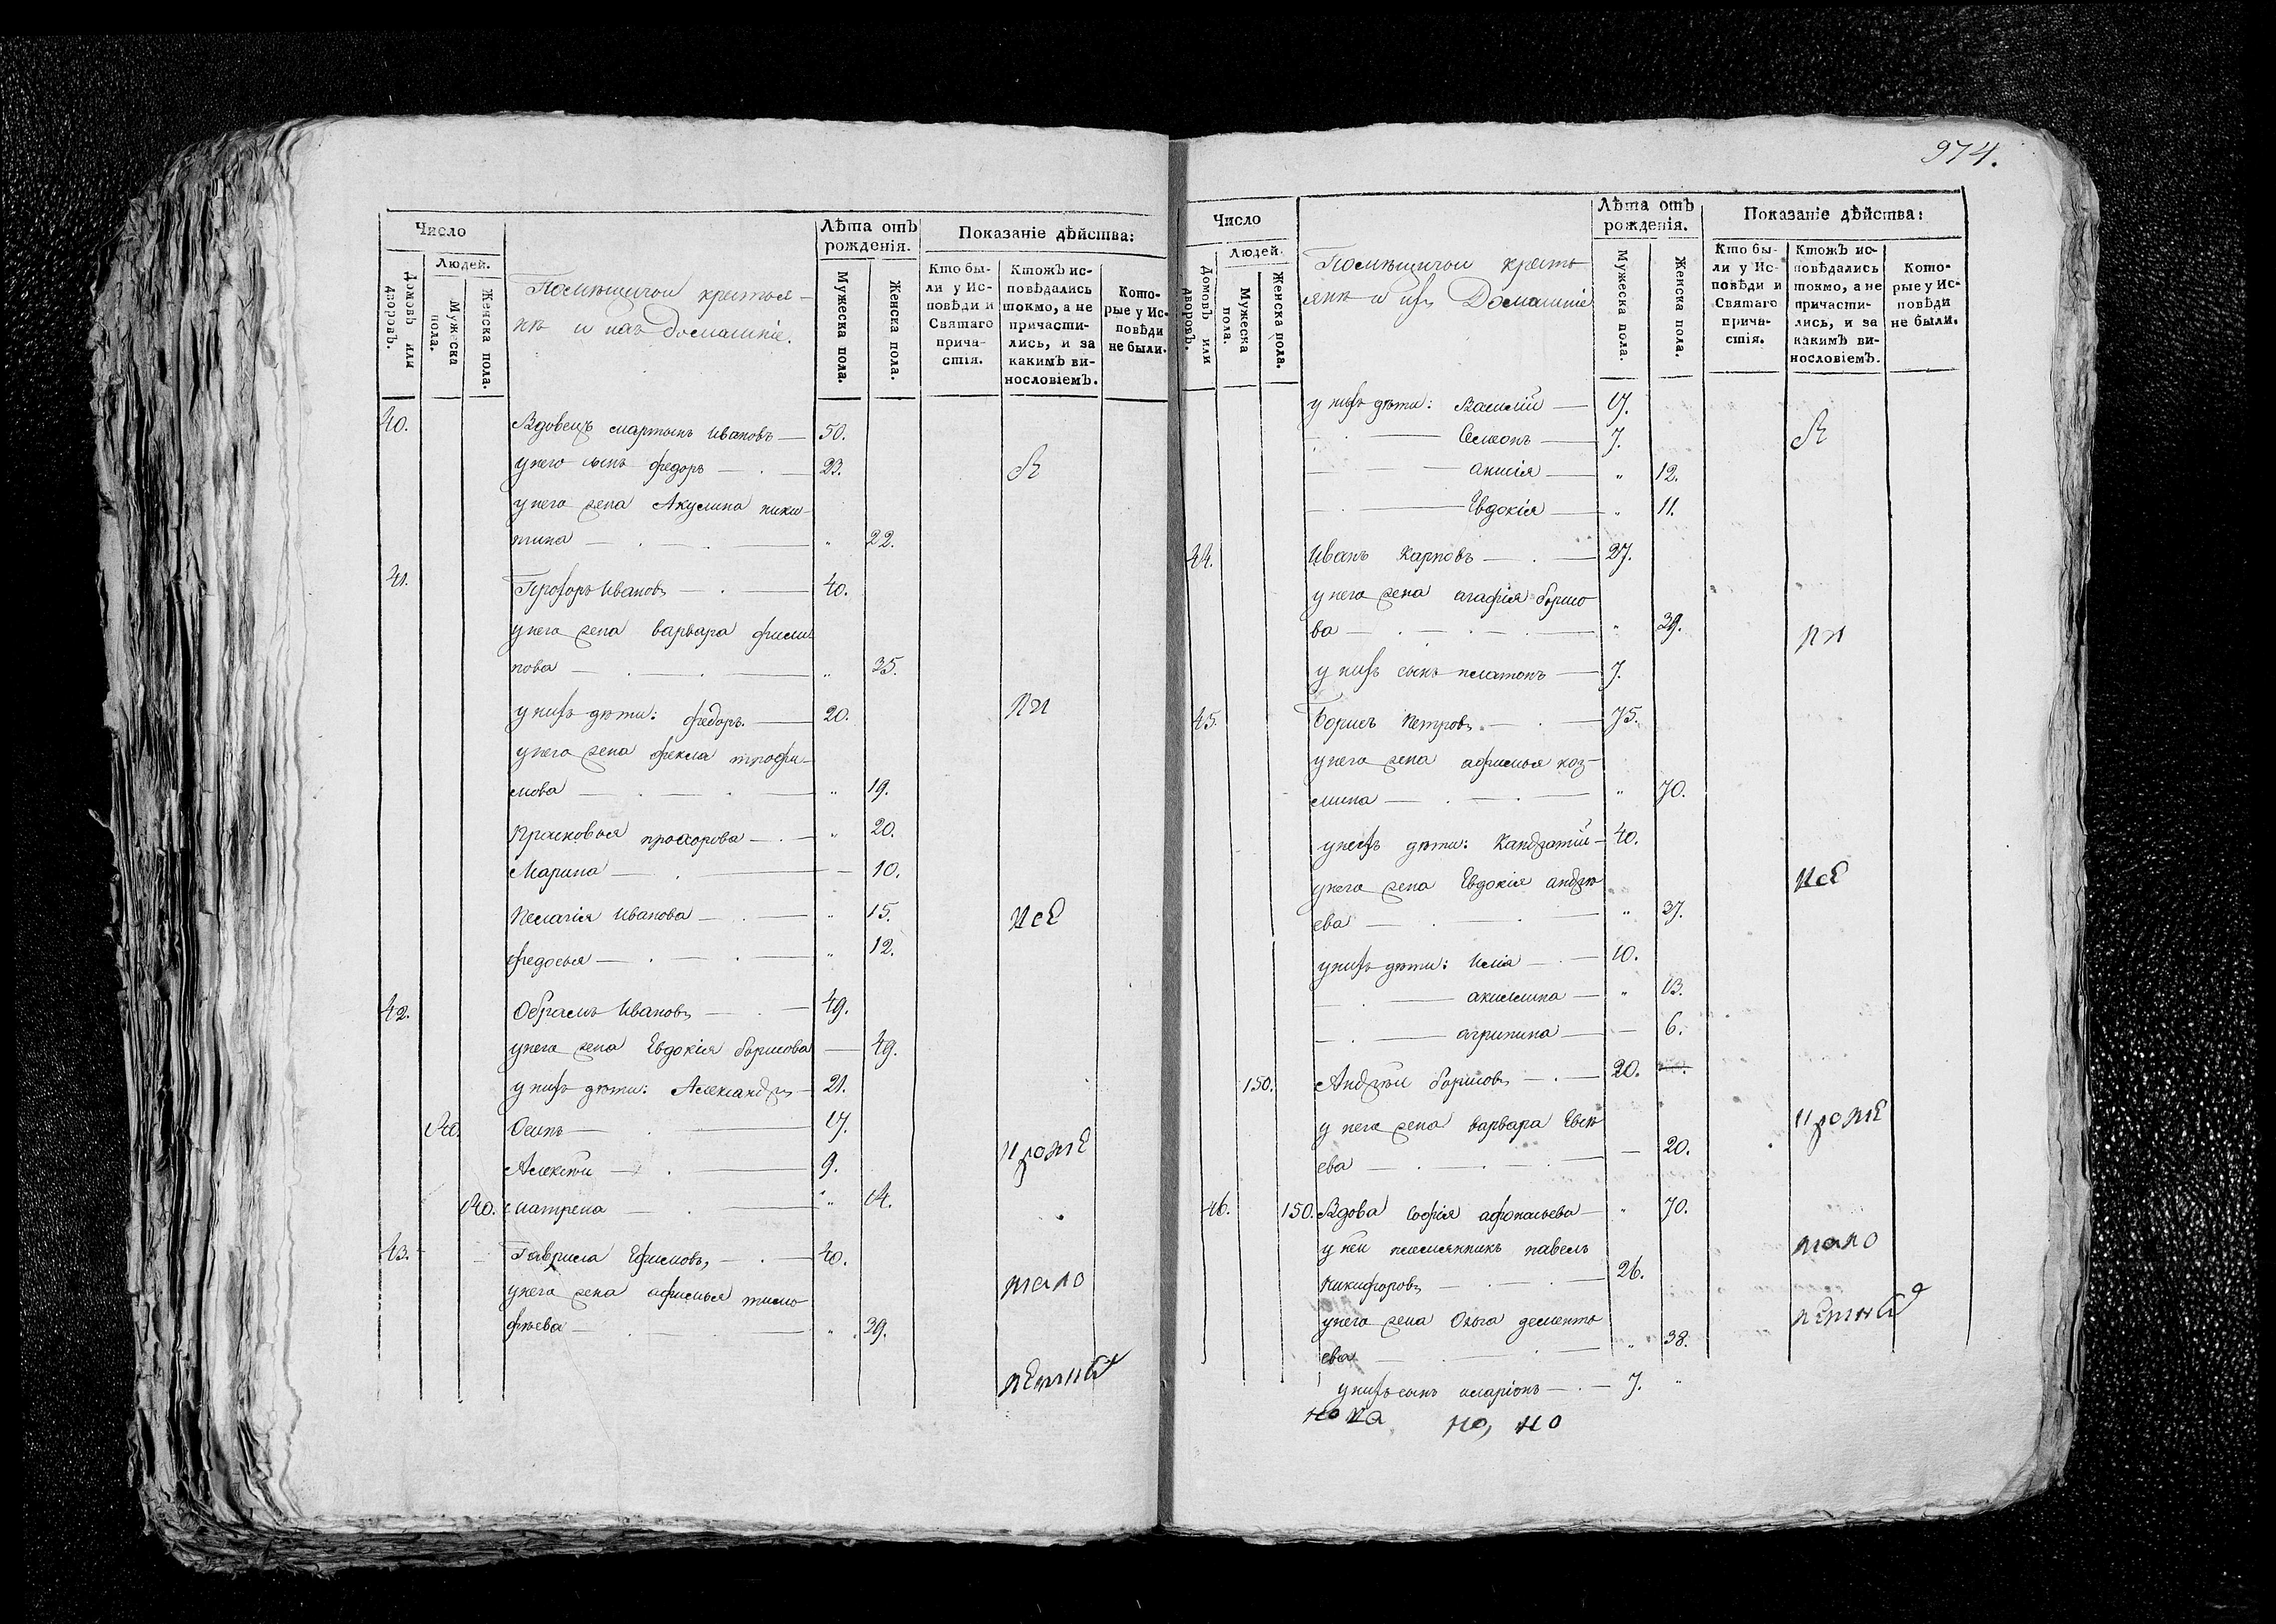 974.
Число
Людей.
Домовъ или дворовъ.
Мужеска пола.
Женска пола.
Помѣщичьи крестья-
нѣ и ихъ домашніе.
Лѣта отъ рожденія.
Мужеска пола.
Женска пола.
Показаніе дѣйства:
Кто бы-
ли у Ис-
повѣди и
Святаго
прича-
стія.
Ктожъ ис-
повѣдались
токмо, а не
причасти-
лись, и за
какимъ ви-
нословіемъ.
Кото-
рые у Ис-
повѣди
не были.
40. Вдовецъ мартынъ Ивановъ — 50.
у него сынъ федоръ — 23.
у него жена Акулина ники-
тина — " 22.
41. Прохоръ Ивановъ — 40.
у него жена варвара фили
пова — " 35.
у нихъ дѣти: федоръ — 20.
у него жена фекла трофи-
мова — " 19.
Прасковья прохорова — " 20.
Марина — 10.
Пелагія Иванова — " 15.
федосья — " 12.
42. Обрамъ Ивановъ — 49.
у него жена Евдокія борисова — 49.
у нихъ дѣти: Александръ — 21.
140. Осипъ — 17.
Алексѣй — 9.
140. матрена — " 14.
43. Гаврила Ефимовъ — 40.
у него жена афимья тимо
фѣева — " 39.
Число
Людей.
Домовъ или дворовъ.
Мужеска пола.
Женска пола.
Помѣщичьи кресть
янѣ и ихъ Домашніе
Лѣта отъ рожденія.
Мужеска пола.
Женска пола.
Показаніе дѣйства:
Кто бы-
ли у Ис-
повѣди и
Святаго
прича-
стія.
Ктожъ ис-
повѣдались
токмо, а не
причасти-
лись, и за
какимъ ви-
нословіемъ.
Кото-
рые у Ис-
повѣди
не были.
у нихъ дѣти: Василій — 17.
Семионъ — 7.
анисія — " 12.
Евдокія — " 11.
44. Иванъ Карповъ — 27.
у него жена агафія борисо
ва — " 39.
у нихъ сынъ платонъ — 7.
45. Борисъ Петровъ — 75.
у него жена афимья коз-
мина — " 70.
у нихъ дѣти: Кандратій — 40.
у него жена Евдокія андрѣ
ева — " 37.
у нихъ дѣти: Илія — 10.
акилина — " 13.
агрипина — 6.
150. Андрѣй борисовъ — 20.
у него жена варвара Евсѣ
ева — 20.
46. 150. Вдова софія афонасьева — " 70.
у ней племянникъ павелъ
Никифоровъ — 26.
у него жена Ольга дементь
ева — " 38.
у нихъ сынъ иларіонъ — 7. "